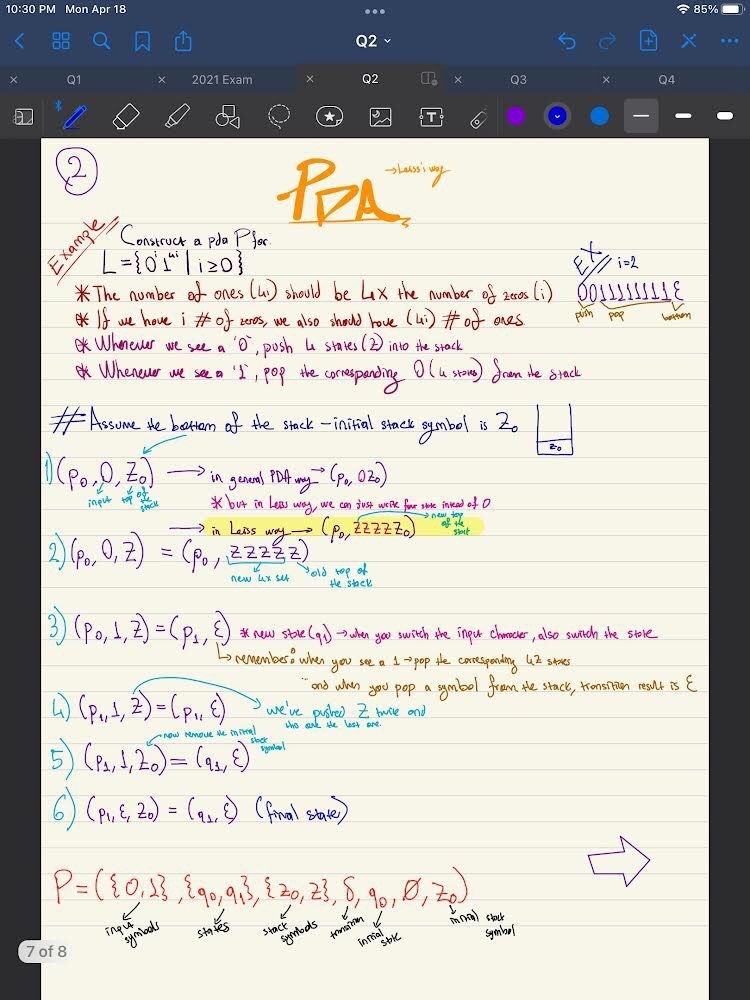 10:30 PM Mon Apr 18
85%
Q2
Q1
2021 Exam
Q2
Q3
Q4
2
PDA
→Leiss'i way
Example
Construct a pda P for
L={0ⁱ1⁴ⁱ | i≥0}
EX
i=2
0011111111ε
push pop bottom
*The number of ones (4i) should be 4x the number of zeros (i)
* If we have i # of zeros, we also should have (4i) # of ones
* Whenever we see a '0', push 4 states (Z) into the stack
* Whenever we see a '1', pop the corresponding 0 (4 states) from the stack
# Assume the bottom of the stack - initial stack symbol is Z₀
Z₀
1) (p₀, 0, Z₀) → in general PDA way → (p₀, 0Z₀)
input top of the stack
* but in Leiss way, we can just write four state instead of 0
→ in Leiss way → (p₀, ZZZZZ₀) new top of the stack
2) (p₀, 0, Z) = (p₀, ZZZZZ)
new 4x set
old top of the stack
3) (p₀, 1, Z) = (p₁, ε) * new state (q₁) → when you switch the input character, also switch the state
↳ remember: when you see a 1 → pop the corresponding 4Z states
and when you pop a symbol from the stack, transition result is ε
4) (p₁, 1, Z) = (p₁, ε)
we've pushed Z twice and
this one the last one.
now remove the initial stack symbol
5) (p₁, 1, Z₀) = (q₁, ε)
6) (p₁, ε, Z₀) = (q₁, ε) (final state)
P = ({0,1}, {q₀, q₁}, {z₀, z}, δ, q₀, Ø, Z₀)
input symbols
states
stack symbols
transition
initial state
initial stack symbol
7 of 8